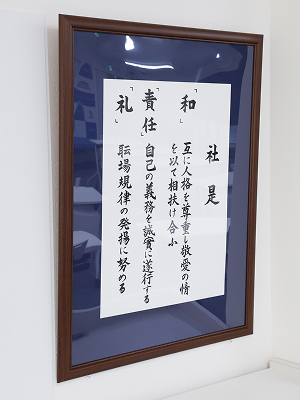 社是
「和」
互に人格を尊重し敬愛の情
を以て相扶け合ふ
「責任」
自己の義務を誠實に遂行する
「礼」
職場規律の発揚に努める